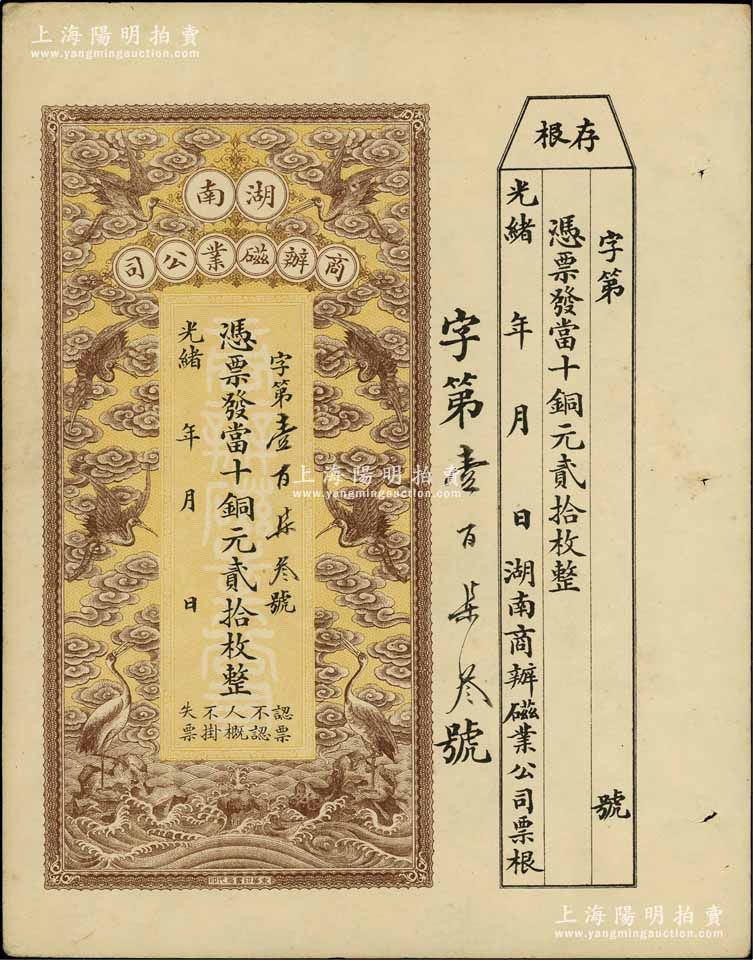 上海陽明拍賣
www.yangmingauction.com
上海陽明拍賣
www.yangmingauction.com
存根
字第 號
憑票發當十銅元貳拾枚整
光緒 年 月 日 湖南商辦磁業公司票根
字第壹百柒叁號
湖南
商辦磁業公司
字第壹百柒叁號
憑票發當十銅元貳拾枚整
光緒 年 月 日
認票不認人概不掛失票
上海陽明拍賣
www.yangmingauction.com
上海陽明拍賣
www.yangmingauction.com